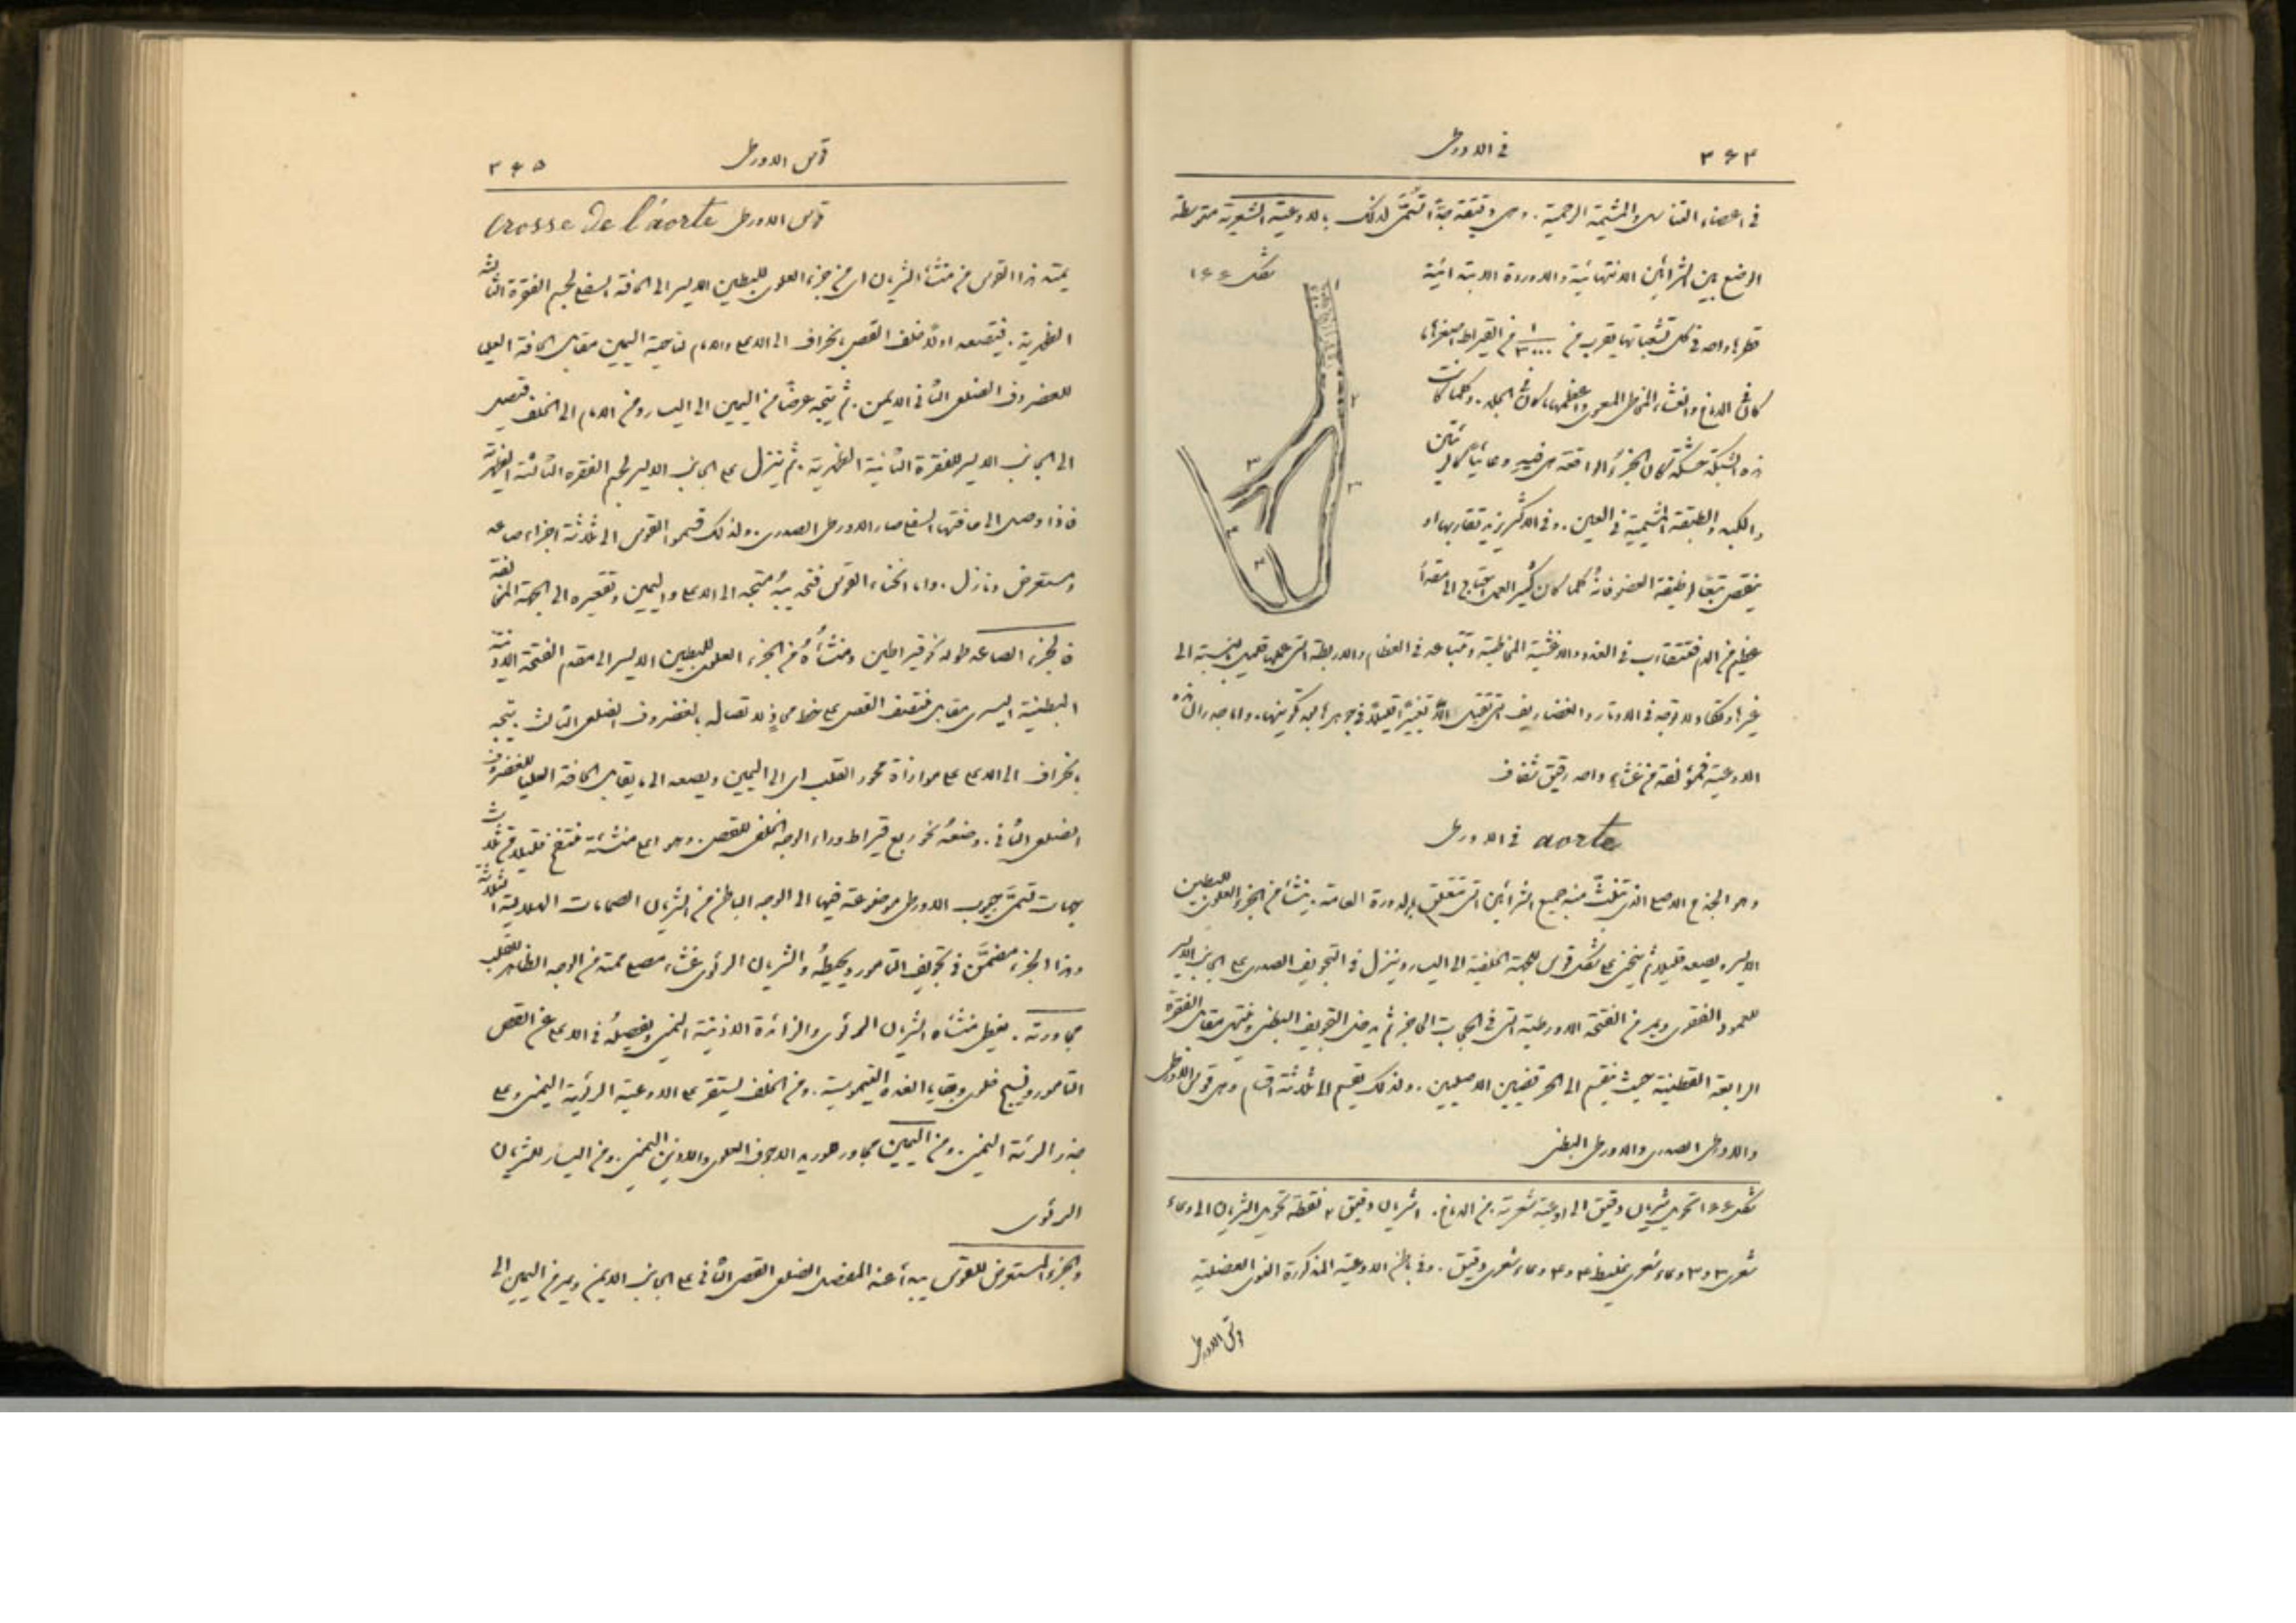 ٣٦٤ في الاورطى
في اعضاء التناسل والمشيمة الرحمية. وهي دقيقة جداً تسمّى لذلك بالاوعية الشعرية متوسطة
شكل ١٦٦
الوضع بين الشرائين الانتهائية والاوردة الابتدائية
قطرها واحد في كل تشعباتها يقرب من ١/٣٠٠٠ من القيراط اصغرها
كائن في الدماغ والغشاء المخاطي المعوي واعظمها كائن في الجلد. وكلما كانت
هذه الشبكة كان الجزء الواقعة هي فيه كالرئتين
والكبد والطبقة المشيمية في العين. وفي الاكثر يزيد تقاربها او
ينقص تبعاً لوظيفة العضو فانه كلما كان كثير العمل احتاج الى مقدار
عظيم من الدم فتتقارب في الغدد والاغشية المخاطية وتتباعد في العظام والاربطة التي عملها قليل بالنسبة الى
غيرها وتكاد لا توجد في الاوتار والغضاريف التي تقبل الا تغييراً قليلاً في جوهرها بعد تكوينها. واما جدران هذه
الاوعية فمؤلفة من غشاء واحد رقيق شفاف
في الاورطى aorte
وهو الجذع الاصلي الذي تنبثّ منه جميع الشرائين التي تتعلق بالدورة العامة. ينشأ من الجزء العلوي للبطين
الايسر ويصعد قليلاً ثم ينحني على شكل قوس للجهة الخلفية الى اليسار وينزل في التجويف الصدري على الجانب الايسر
للعمود الفقري ويمر من الفتحة الاورطية التي في الحجاب الحاجز ثم يدخل التجويف البطني وينتهي مقابل الفقرة
الرابعة القطنية حيث ينقسم الى الحرقفيين الاصليين. ولذلك يقسم الى ثلاثة اقسام وهي قوس الاورطى
والاورطى الصدري والاورطى البطني
شكل ١٦٦ تحويل شريان دقيق الى اوعية شعرية من الدماغ. ١ شريان دقيق ٢ نقطة تحويل الشريان الى وعاء
شعري ٣ و ٣ وعاء شعري غليظ ٤ و ٤ وعاء شعري دقيق. وفي باطن الاوعية المذكورة النوى العضلية
قوس الاورطى
قوس الاورطى ٣٦٥
قوس الاورطى Crosse de l'aorte
يمتد هذا القوس من منشأ الشريان اي من جزء العلوي للبطين الايسر الى الحافة السفلى لجسم الفقرة الثالثة
الظهرية. فيتصعد اولاً خلف القص بانحراف الى الاعلى والامام لناحية اليمين مقابل الحافة العليا
للغضروف الضلعي الثاني الايمن. ثم يتجه عرضاً من اليمين الى اليسار ومن الامام الى الخلف فيصل
الى الجانب الايسر للفقرة الثانية الظهرية. ثم ينزل على الجانب الايسر لجسم الفقرة الثالثة الظهرية
فاذا وصل الى حافتها السفلى صار الاورطى الصدري. ولذلك قسموا القوس الى ثلاثة اجزاء صاعد
ومستعرض ونازل. واما انحناء القوس فتحديبه متجه الى الاعلى واليمين وتقعيره الى الجهة المخالفة
فالجزء الصاعد طوله نحو قيراطين ومنشأه من الجزء العلوي للبطين الايسر الى مقدم الفتحة الاذنية
البطينية اليسرى مقابل منتصف القص على خط محاذٍ لاتصاله بالغضروف الضلعي الثالث يتجه
بانحراف الى الاعلى على موازاة محور القلب اي الى اليمين ويصعد الى ما يقابل الحافة العليا للغضروف
الضلعي الثاني. وضعه نحو ربع قيراط وراء الوجه الخلفي للقص. وهو اي منشئه منتفخ قليلاً من ثلاث
جهات تسمى جيوب الاورطى موضوعة فيها الى الوجه الباطن من الشريان الصمامات الهلالية الثلاثة
وهذا الجزء مضمن في تجويف التامور ويحيطه والشريان الرئوي غشاء مصلي ممتد من الوجه الظاهر للقلب
مجاورته. يغطي منشأه الشريان الرئوي والزائدة الاذنية اليمنى ويفصله في الاعلى عن القص
التامور ونسيج خلوي وبقايا الغدة التيموسية. ومن الخلف يستقر على الاوعية الرئوية اليمنى وعلى
جذر الرئة اليمنى. ومن اليمين مجاور هو وريد الاجوف العلوي والاذين اليمنى. ومن اليسار للشريان
الرئوي
والجزء المستعرض للقوس يبدأ عند المفصل الضلعي القصي الثاني على الجانب الايمن ويمر من اليمين الى